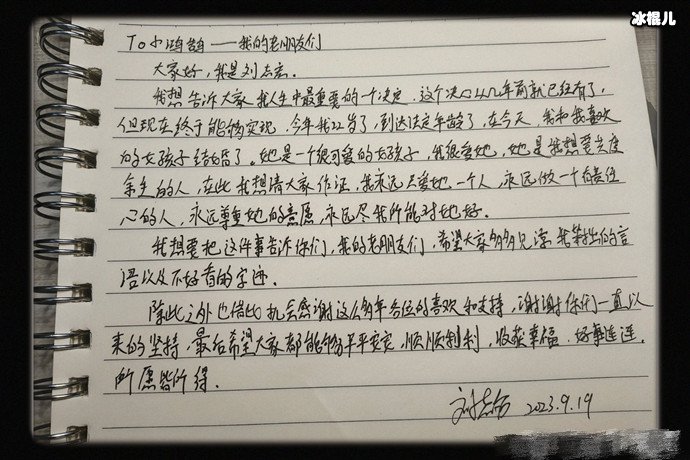 冰棍儿
To 小鸿鹄——我的老朋友们
大家好，我是刘志宏.
我想告诉大家我人生中最重要的一个决定，这个决心从几年前就已经有了，
但现在终于能够实现，今年我22岁了，到达法定年龄了，在今天，我和我喜欢
的女孩子结婚了。她是一个很可爱的女孩子，我很爱她，她是我想要共度
余生的人，在此我想请大家作证，我永远只爱她一个人，永远做一个有责任
心的人，永远尊重她的意愿，永远尽我所能对她好.
我想要把这件事告诉你们，我的老朋友们，希望大家多多见谅我笨拙的言
语以及不好看的字迹.
除此之外也借此机会感谢这么多年各位的喜欢和支持，谢谢你们一直以
来的坚持，最后希望大家都能够平平安安，顺顺利利，收获幸福，好事连连，
所愿皆所得.
刘志宏 2023.9.19